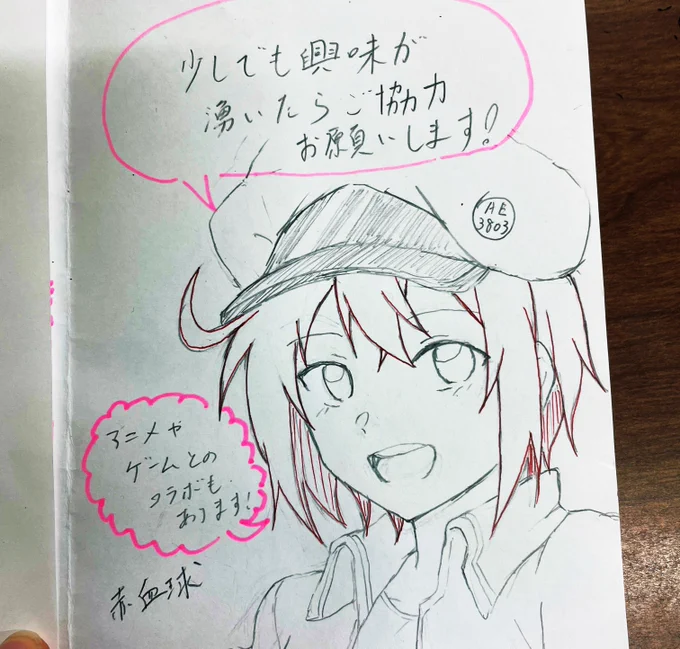 少しでも興味が
湧いたらご協力
お願いします!
AE
3803
アニメや
ゲームとの
コラボも
あります!
赤血球